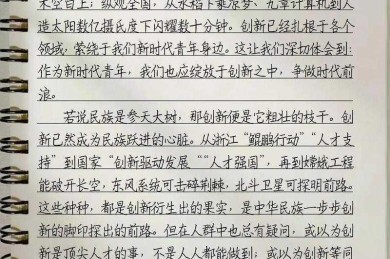 术空白上；纵观全国，从水稻下乘凉梦、九章计算机到人
造太阳数亿摄氏度下闪耀数十分钟。创新已经扎根于各个
领域，萦绕于我们新时代青年身边。这让我们深切体会到：
作为新时代青年，我们也应绽放于创新之中，争做时代前
浪。
若说民族是参天大树，那创新便是它粗壮的枝干。创
新已然成为民族跃进的心脏。从浙江“鲲鹏行动”“人才支
持”到国家“创新驱动发展”“人才强国”，再到嫦娥工程
能破开长空，东风系统可击碎荆棘，北斗卫星可探明前路。
这些种种，都是创新衍生出的果实，是中华民族一步步创
新的脚印探出的前路。但在人群中也总有疑问，或以为创
新是顶尖人才的事，不是人人都能做到；或以为创新等同